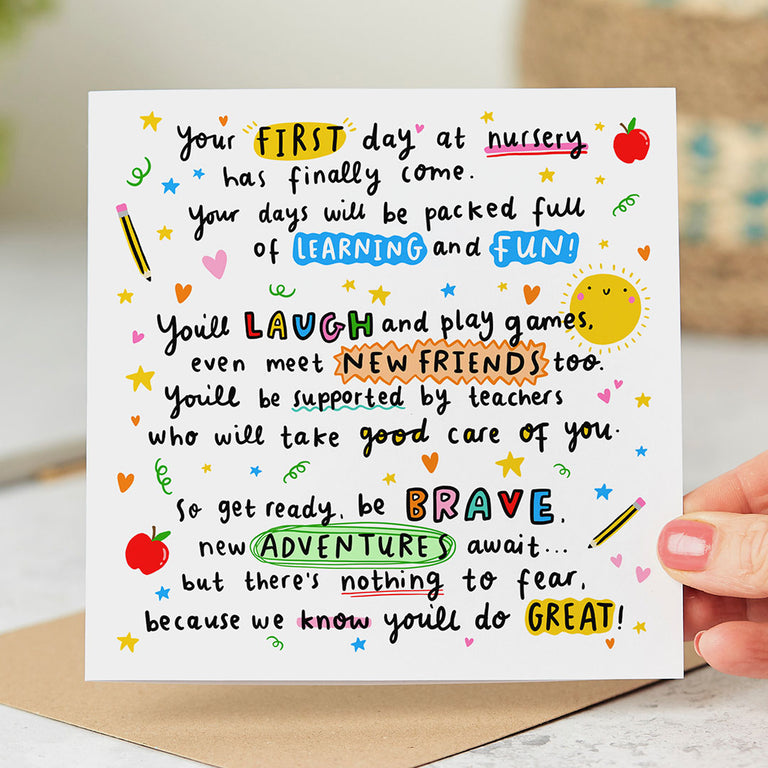 Your FIRST day at nursery
has finally come.
Your days will be packed full
of LEARNING and FUN!
You'll LAUGH and play games,
even meet NEW FRIENDS too.
You'll be supported by teachers
who will take good care of you.
So get ready, be BRAVE,
new ADVENTURES await...
but there's nothing to fear,
because we know you'll do GREAT!